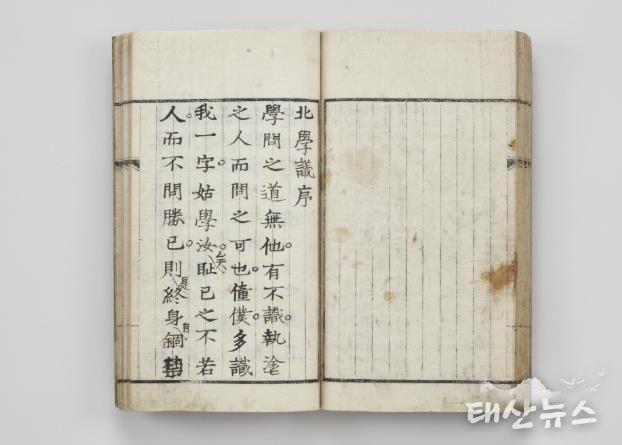 北學議序
學問之道無他有不識執塗
之人而問之可也僮僕多識
我一字姑學汝矣恥己之不若
人而不問勝己則是終身自錮
태산뉴스